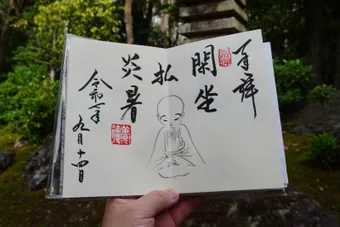 奉拝
閑坐
払
炎暑
令和年
九月十四日